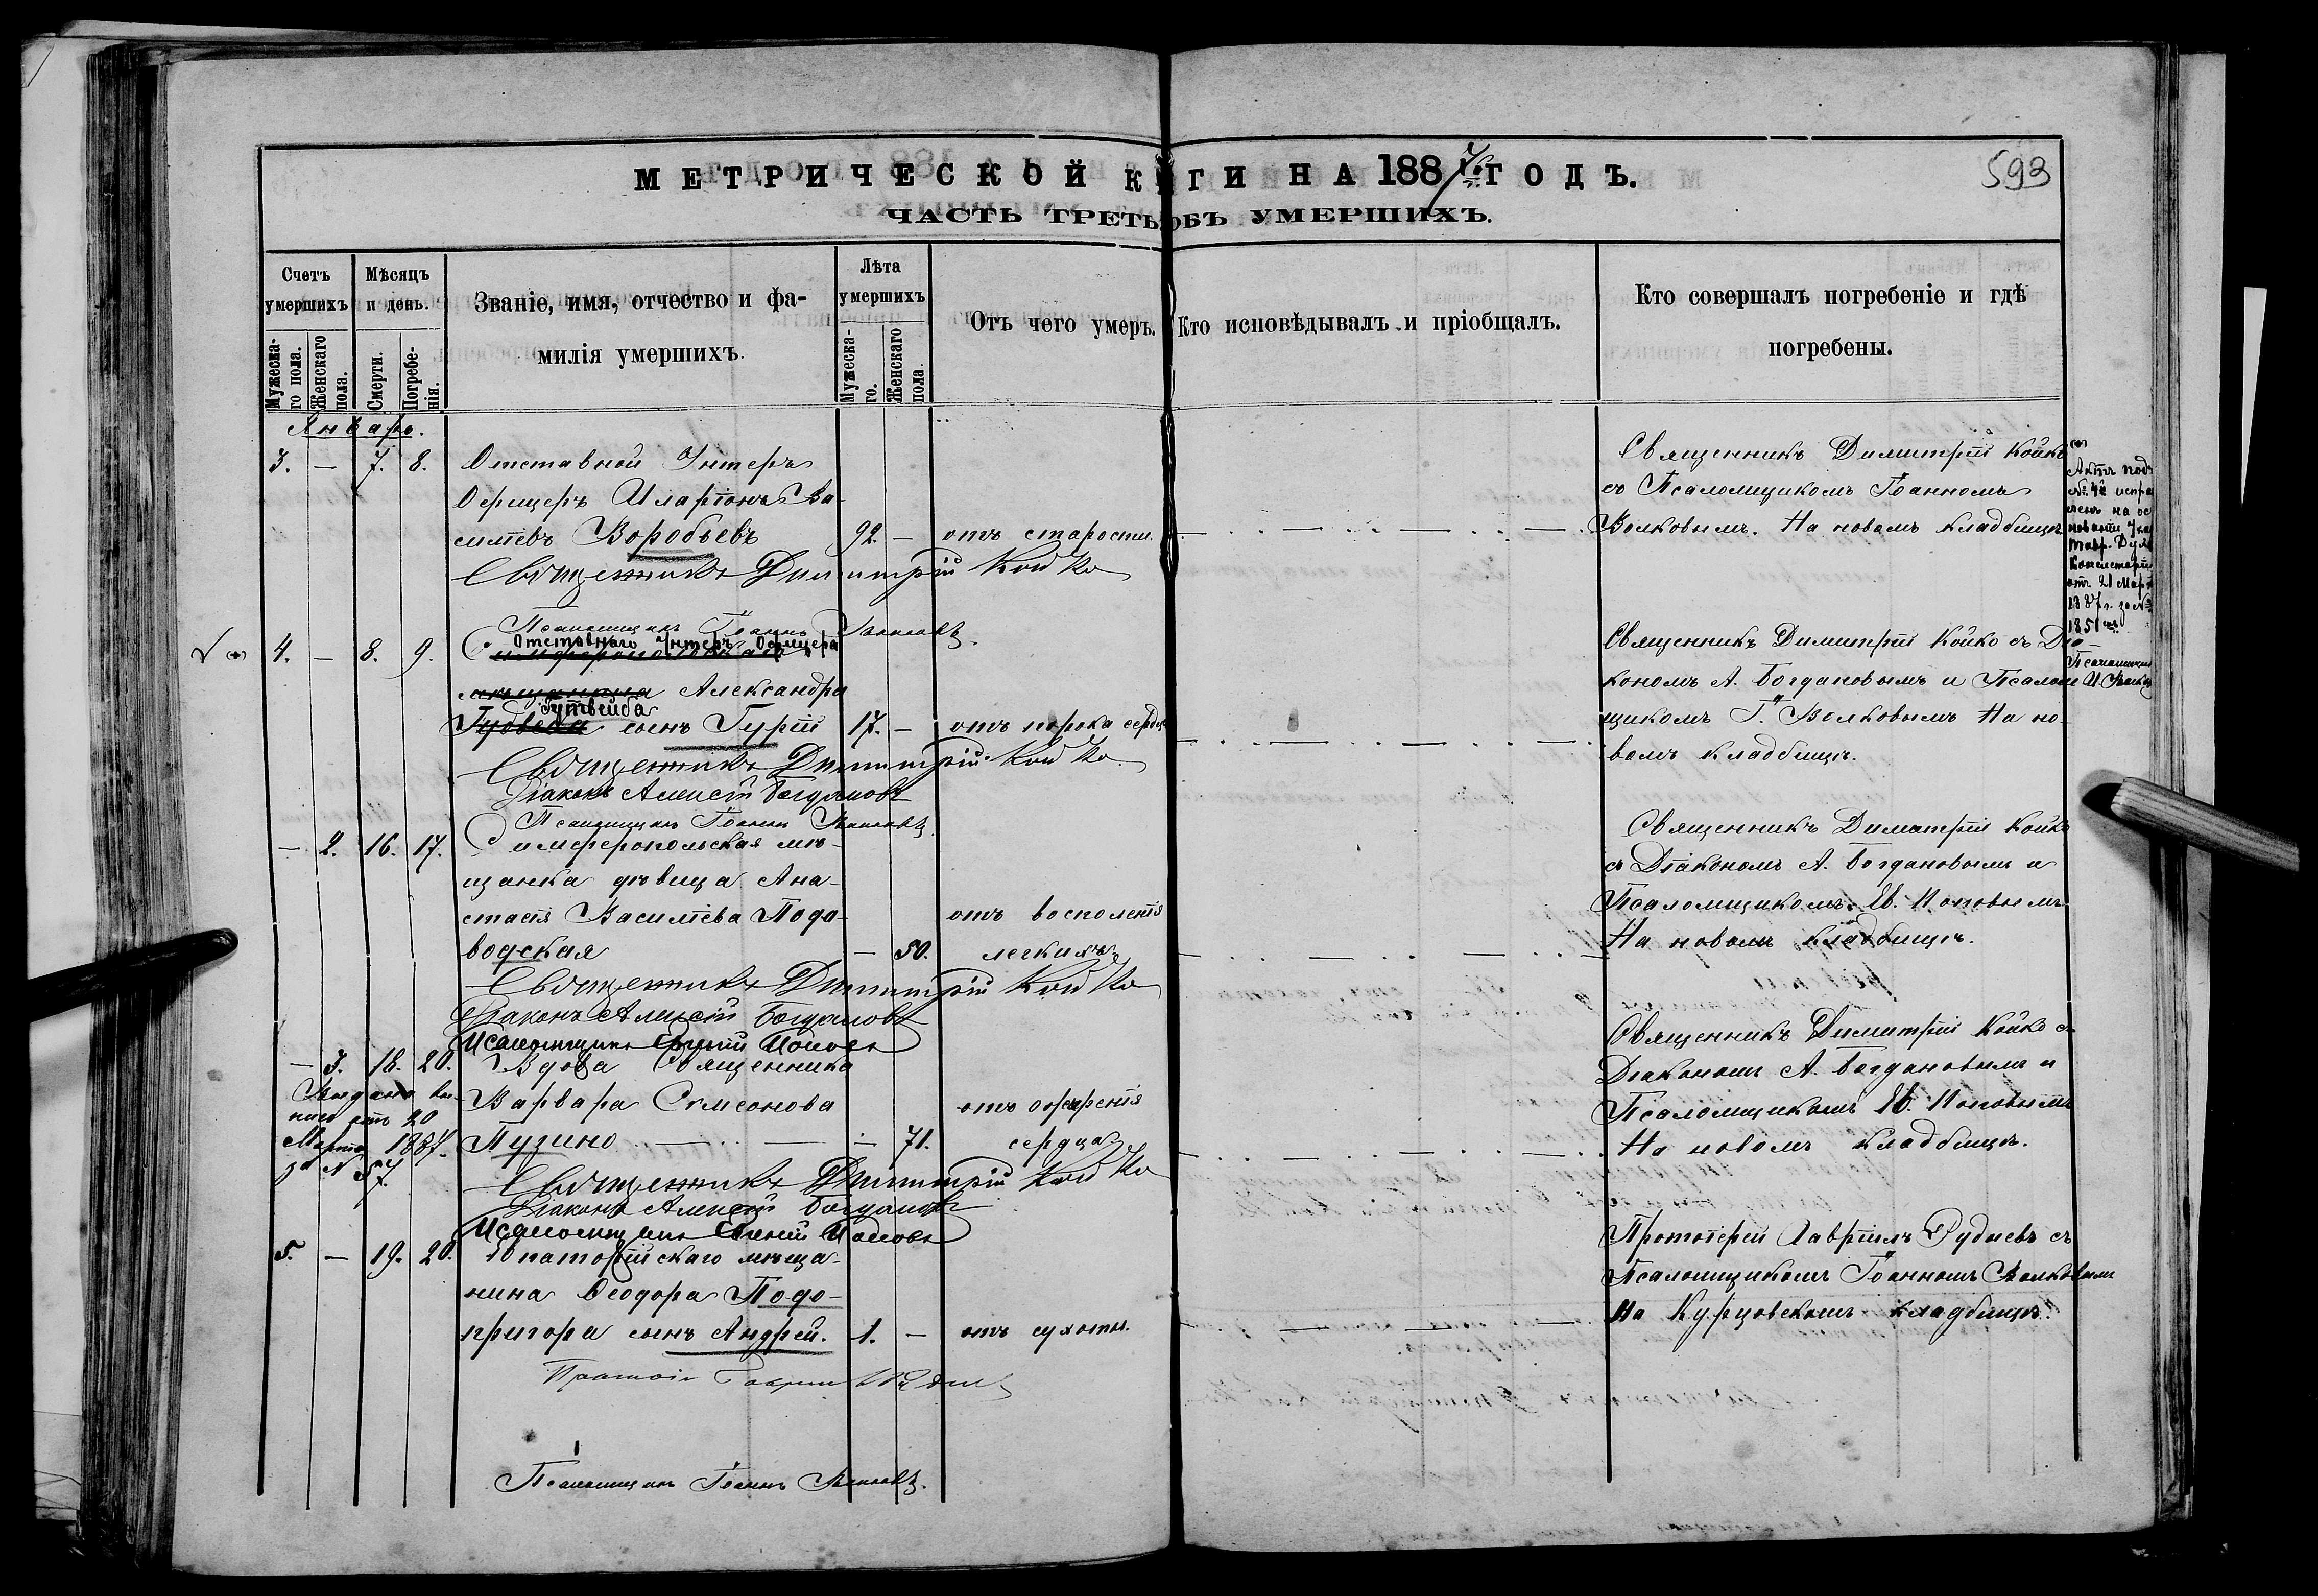 МЕТРИЧЕСКОЙ КНИГИ НА 1887 ГОДЪ.
593
ЧАСТЬ ТРЕТЬЯ ОБЪ УМЕРШИХЪ.
Счетъ умершихъ
Мужеска-го пола.
Женскаго пола.
Мѣсяцъ и день.
Смерти.
Погребе-нія.
Званіе, имя, отчество и фа-
милія умершихъ.
Лѣта умершихъ
Мужеска-го.
Женскаго пола.
Отъ чего умеръ.
Кто исповѣдывалъ и пріобщалъ.
Кто совершалъ погребеніе и гдѣ
погребены.
Январь.
3. — 7. 8. Отставной Унтеръ
Офицеръ Иларіонъ Ва-
силіевъ Воробьевъ 92. — отъ старости.
Священникъ Димитрій Койко
съ Псаломщикомъ Іоанномъ
Волковымъ. На новомъ кладбищѣ
Священникъ Димитрій Койко
Псаломщикъ Іоаннъ Волковъ
Актъ подъ
№ 4й исправ
ленъ на ос
нованіи Указа
Тавр. Дух.
Консисторіи
отъ 21 Марта
1887 г. за №
1851
Псаломщикъ
И. Волковъ
4. — 8. 9. Отставнаго Унтеръ Офицера
Симферопольскаго
мѣщанина Александра
Гутвейба
сынъ Гурій 17. — отъ порока сердца
Священникъ Димитрій Койко съ Діа-
кономъ А. Богдановымъ и Псалом
щикомъ І. Волковымъ На но-
вомъ кладбищѣ.
Священникъ Димитрій Койко
Діаконъ Алексій Богдановъ
Псаломщикъ Іоаннъ Волковъ
— 2. 16. 17. Симферопольская мѣ-
щанка дѣвица Ана-
стасія Василіева Подо- отъ восполенія
водская — 50. легкихъ
Священникъ Димитрій Койко
съ Діакономъ А. Богдановымъ и
Псаломщикомъ Ев. Поповымъ
На новомъ кладбищѣ.
Священникъ Димитрій Койко
Діаконъ Алексій Богдановъ
Псаломщикъ Евгеній Поповъ
— 3. 18. 20. Вдова Священника
Варвара Симеонова отъ ожирѣнія
Пузино — 71. сердца
Выдано вы-
пись отъ 20
Марта 1887.
за № 57.
Священникъ Димитрій Койко съ
Діакономъ А. Богдановымъ и
Псаломщикомъ Ев. Поповымъ
На новомъ кладбищѣ.
Священникъ Димитрій Койко
Діаконъ Алексій Богдановъ
Псаломщикъ Евгеній Поповъ
5. — 19. 20. Евпаторійскаго мѣща-
нина Ѳеодора Подо-
пригора сынъ Андрей. 1. — отъ сухоты.
Протоіерей Гавріилъ Рудневъ съ
Псаломщикомъ Іоанномъ Волковымъ
На Курцовскомъ кладбищѣ.
Псаломщикъ Іоаннъ Волковъ.